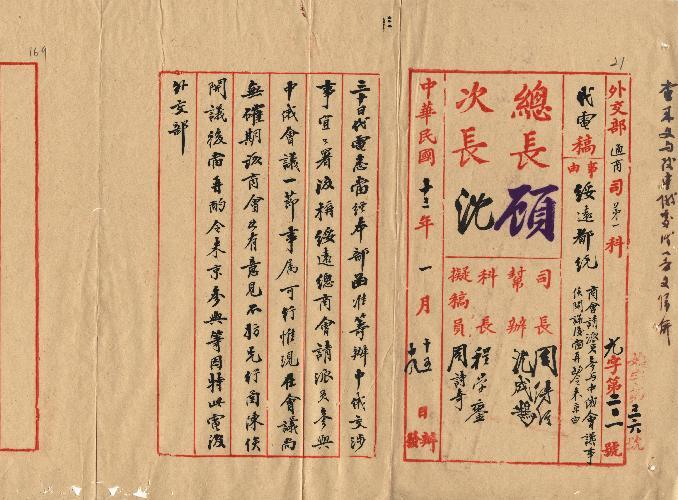 21
169
外交部通商司第一科
代電稿
事由
綏遠都統
商會請派員參與中俄會議事
俟開議後當再酌令來京由
元字第二二一號
總長顧
次長沈
司長周
幫辦沈成鵠
科長程學鑾
擬稿員周詩奇
中華民國十二年一月十五日辦
十九發
三十日代電悉當經本部函准籌辦中俄交涉
事宜公署復稱綏遠總商會請派員參與
中俄會議一節事屬可行惟現在會議尚
無確期該商會如有意見不妨先行函陳俟
開議後當再酌令來京參與等因特此電復
外交部